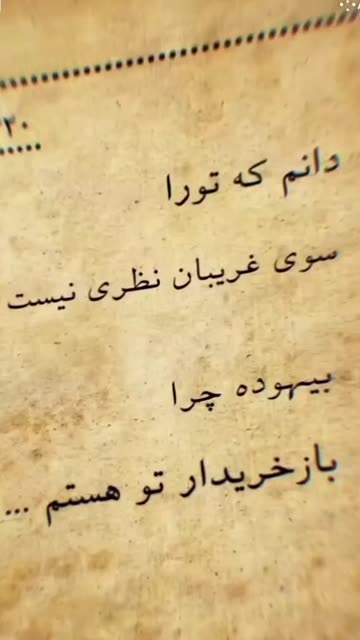 ۲۰
دانم که تورا
سوی غریبان نظری نیست
بیهوده چرا
بازخریدار تو هستم ...